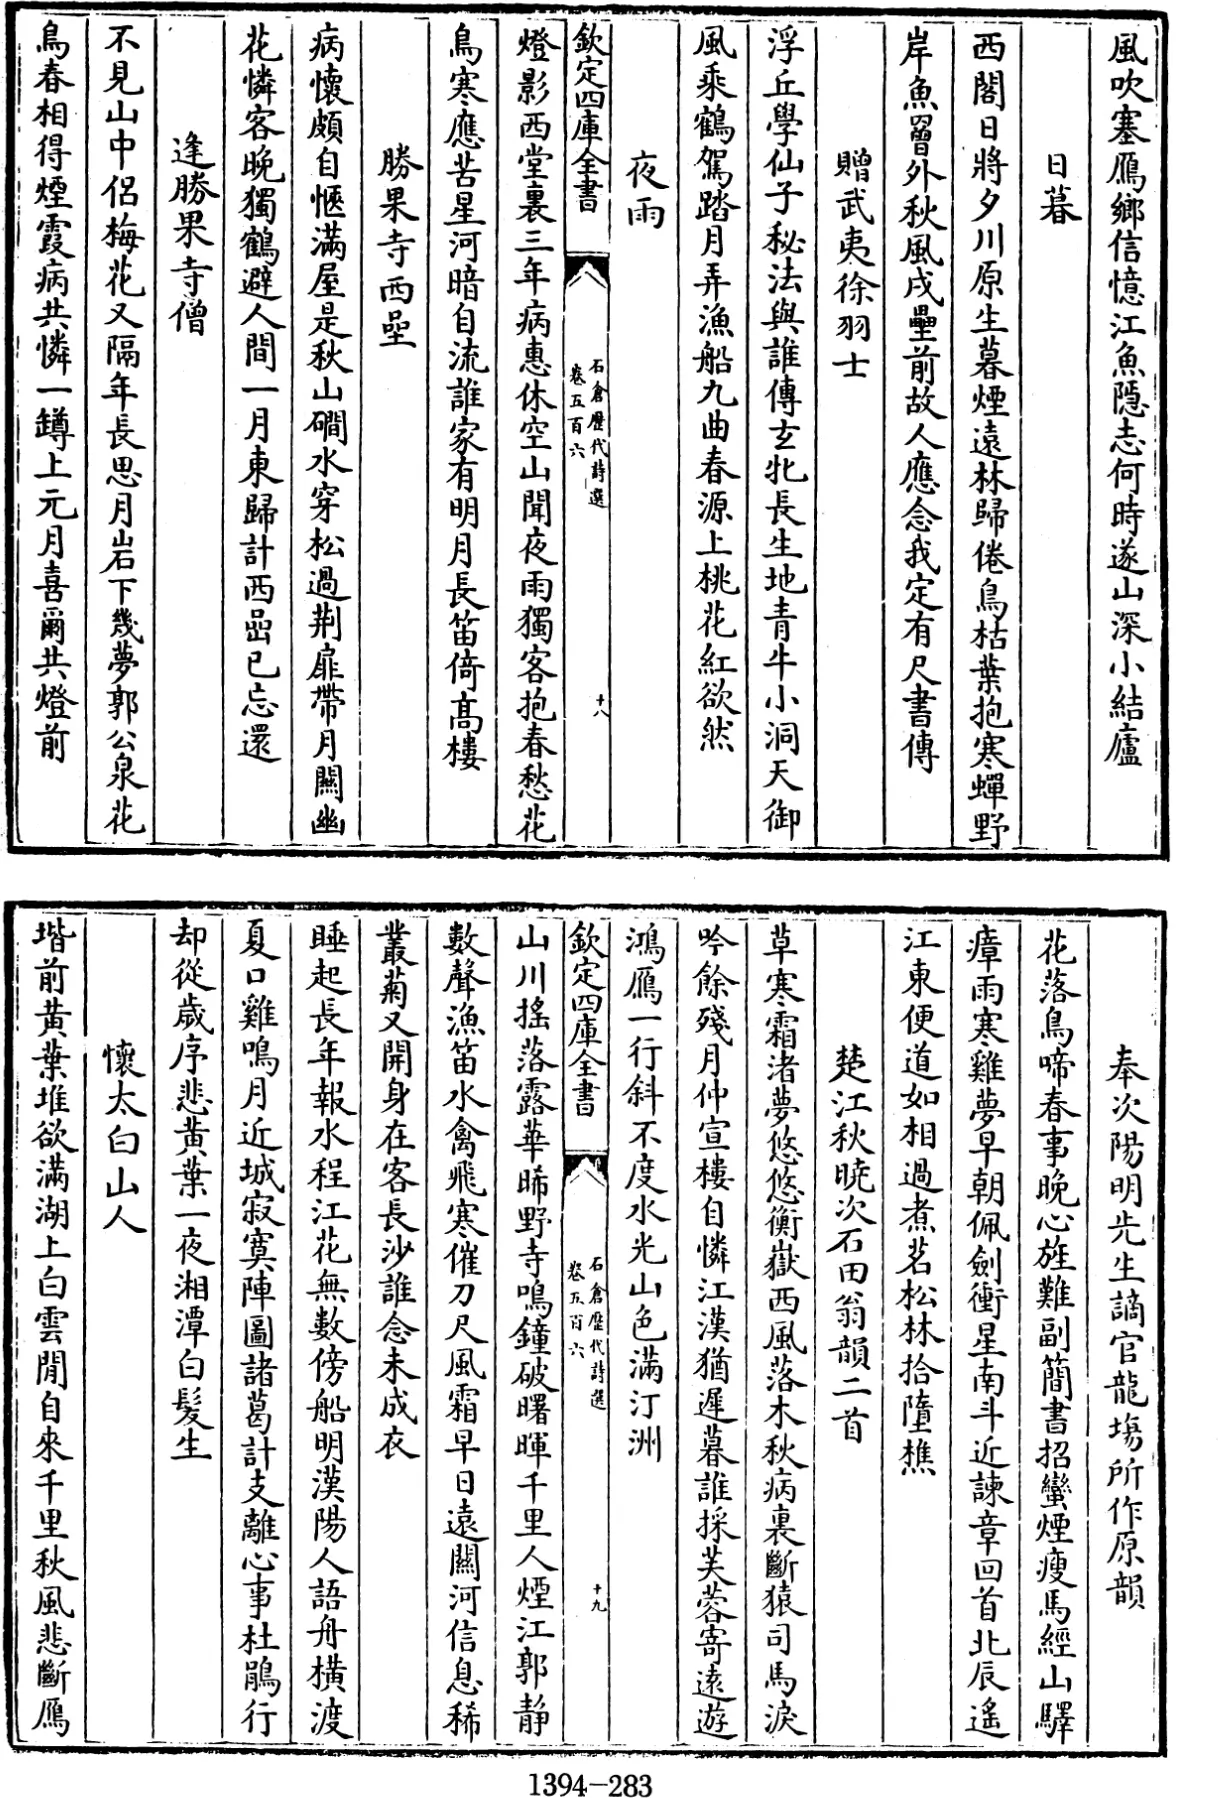 風吹塞鴈鄉信憶江魚隱志何時遂山深小結廬
日暮
西閣日將夕川原生暮煙遠林歸倦鳥枯葉抱寒蟬野
岸魚罾外秋風戍壘前故人應念我定有尺書傳
贈武夷徐羽士
浮丘學仙子秘法與誰傳玄牝長生地青牛小洞天御
風乘鶴駕踏月弄漁船九曲春源上桃花紅欲然
夜雨
欽定四庫全書
石倉歷代詩選
卷五百六
十八
燈影西堂裏三年病惠休空山聞夜雨獨客抱春愁花
鳥寒應苦星河暗自流誰家有明月長笛倚高樓
勝果寺西嵒
病懷頗自愜滿屋是秋山磵水穿松過荆扉帶月關幽
花憐客晚獨鶴避人間一月東歸計西嵒已忘還
逢勝果寺僧
不見山中侶梅花又隔年長思月岩下幾夢郭公泉花
鳥春相得煙霞病共憐一罇上元月喜爾共燈前
奉次陽明先生謫官龍塲所作原韻
花落鳥啼春事晚心旌難副簡書招蠻煙瘦馬經山驛
瘴雨寒雞夢早朝佩劍衝星南斗近諫章回首北辰遙
江東便道如相過煮茗松林拾墮樵
楚江秋曉次石田翁韻二首
草寒霜渚夢悠悠衡嶽西風落木秋病裏斷猿司馬淚
吟餘殘月仲宣樓自憐江漢猶遲暮誰採芙蓉寄遠遊
鴻鴈一行斜不度水光山色滿汀洲
欽定四庫全書
石倉歷代詩選
卷五百六
十九
山川搖落露華晞野寺鳴鐘破曙暉千里人煙江郭靜
數聲漁笛水禽飛寒催刀尺風霜早日遠關河信息稀
叢菊又開身在客長沙誰念未成衣
睡起長年報水程江花無數傍船明漢陽人語舟橫渡
夏口雞鳴月近城寂寞陣圖諸葛計支離心事杜鵑行
却從歲序悲黄葉一夜湘潭白髮生
懷太白山人
堦前黄葉堆欲滿湖上白雲閒自來千里秋風悲斷鴈
1394-283